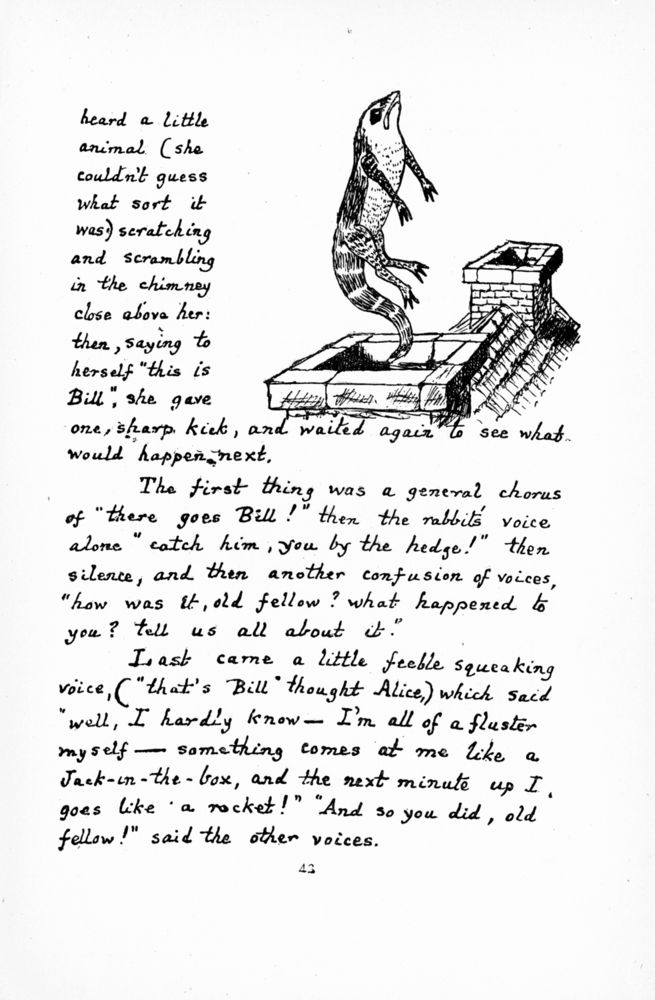 heard a little
animal (she
couldn't guess
what sort it
was) scratching
and scrambling
in the chimney
close above her:
then, saying to
herself "this is
Bill", she gave
one, sharp kick, and waited again to see what
would happen next.
The first thing was a general chorus
of "there goes Bill!" then the rabbits' voice
alone "catch him, you by the hedge!" then
silence, and then another confusion of voices,
"how was it, old fellow? what happened to
you? tell us all about it."
Last came a little feeble squeaking
voice, ("that's Bill" thought Alice,) which said
"well, I hardly know — I'm all of a fluster
myself — something comes at me like a
Jack-in-the-box, and the next minute up I
goes like a rocket!" "And so you did, old
fellow!" said the other voices.
43